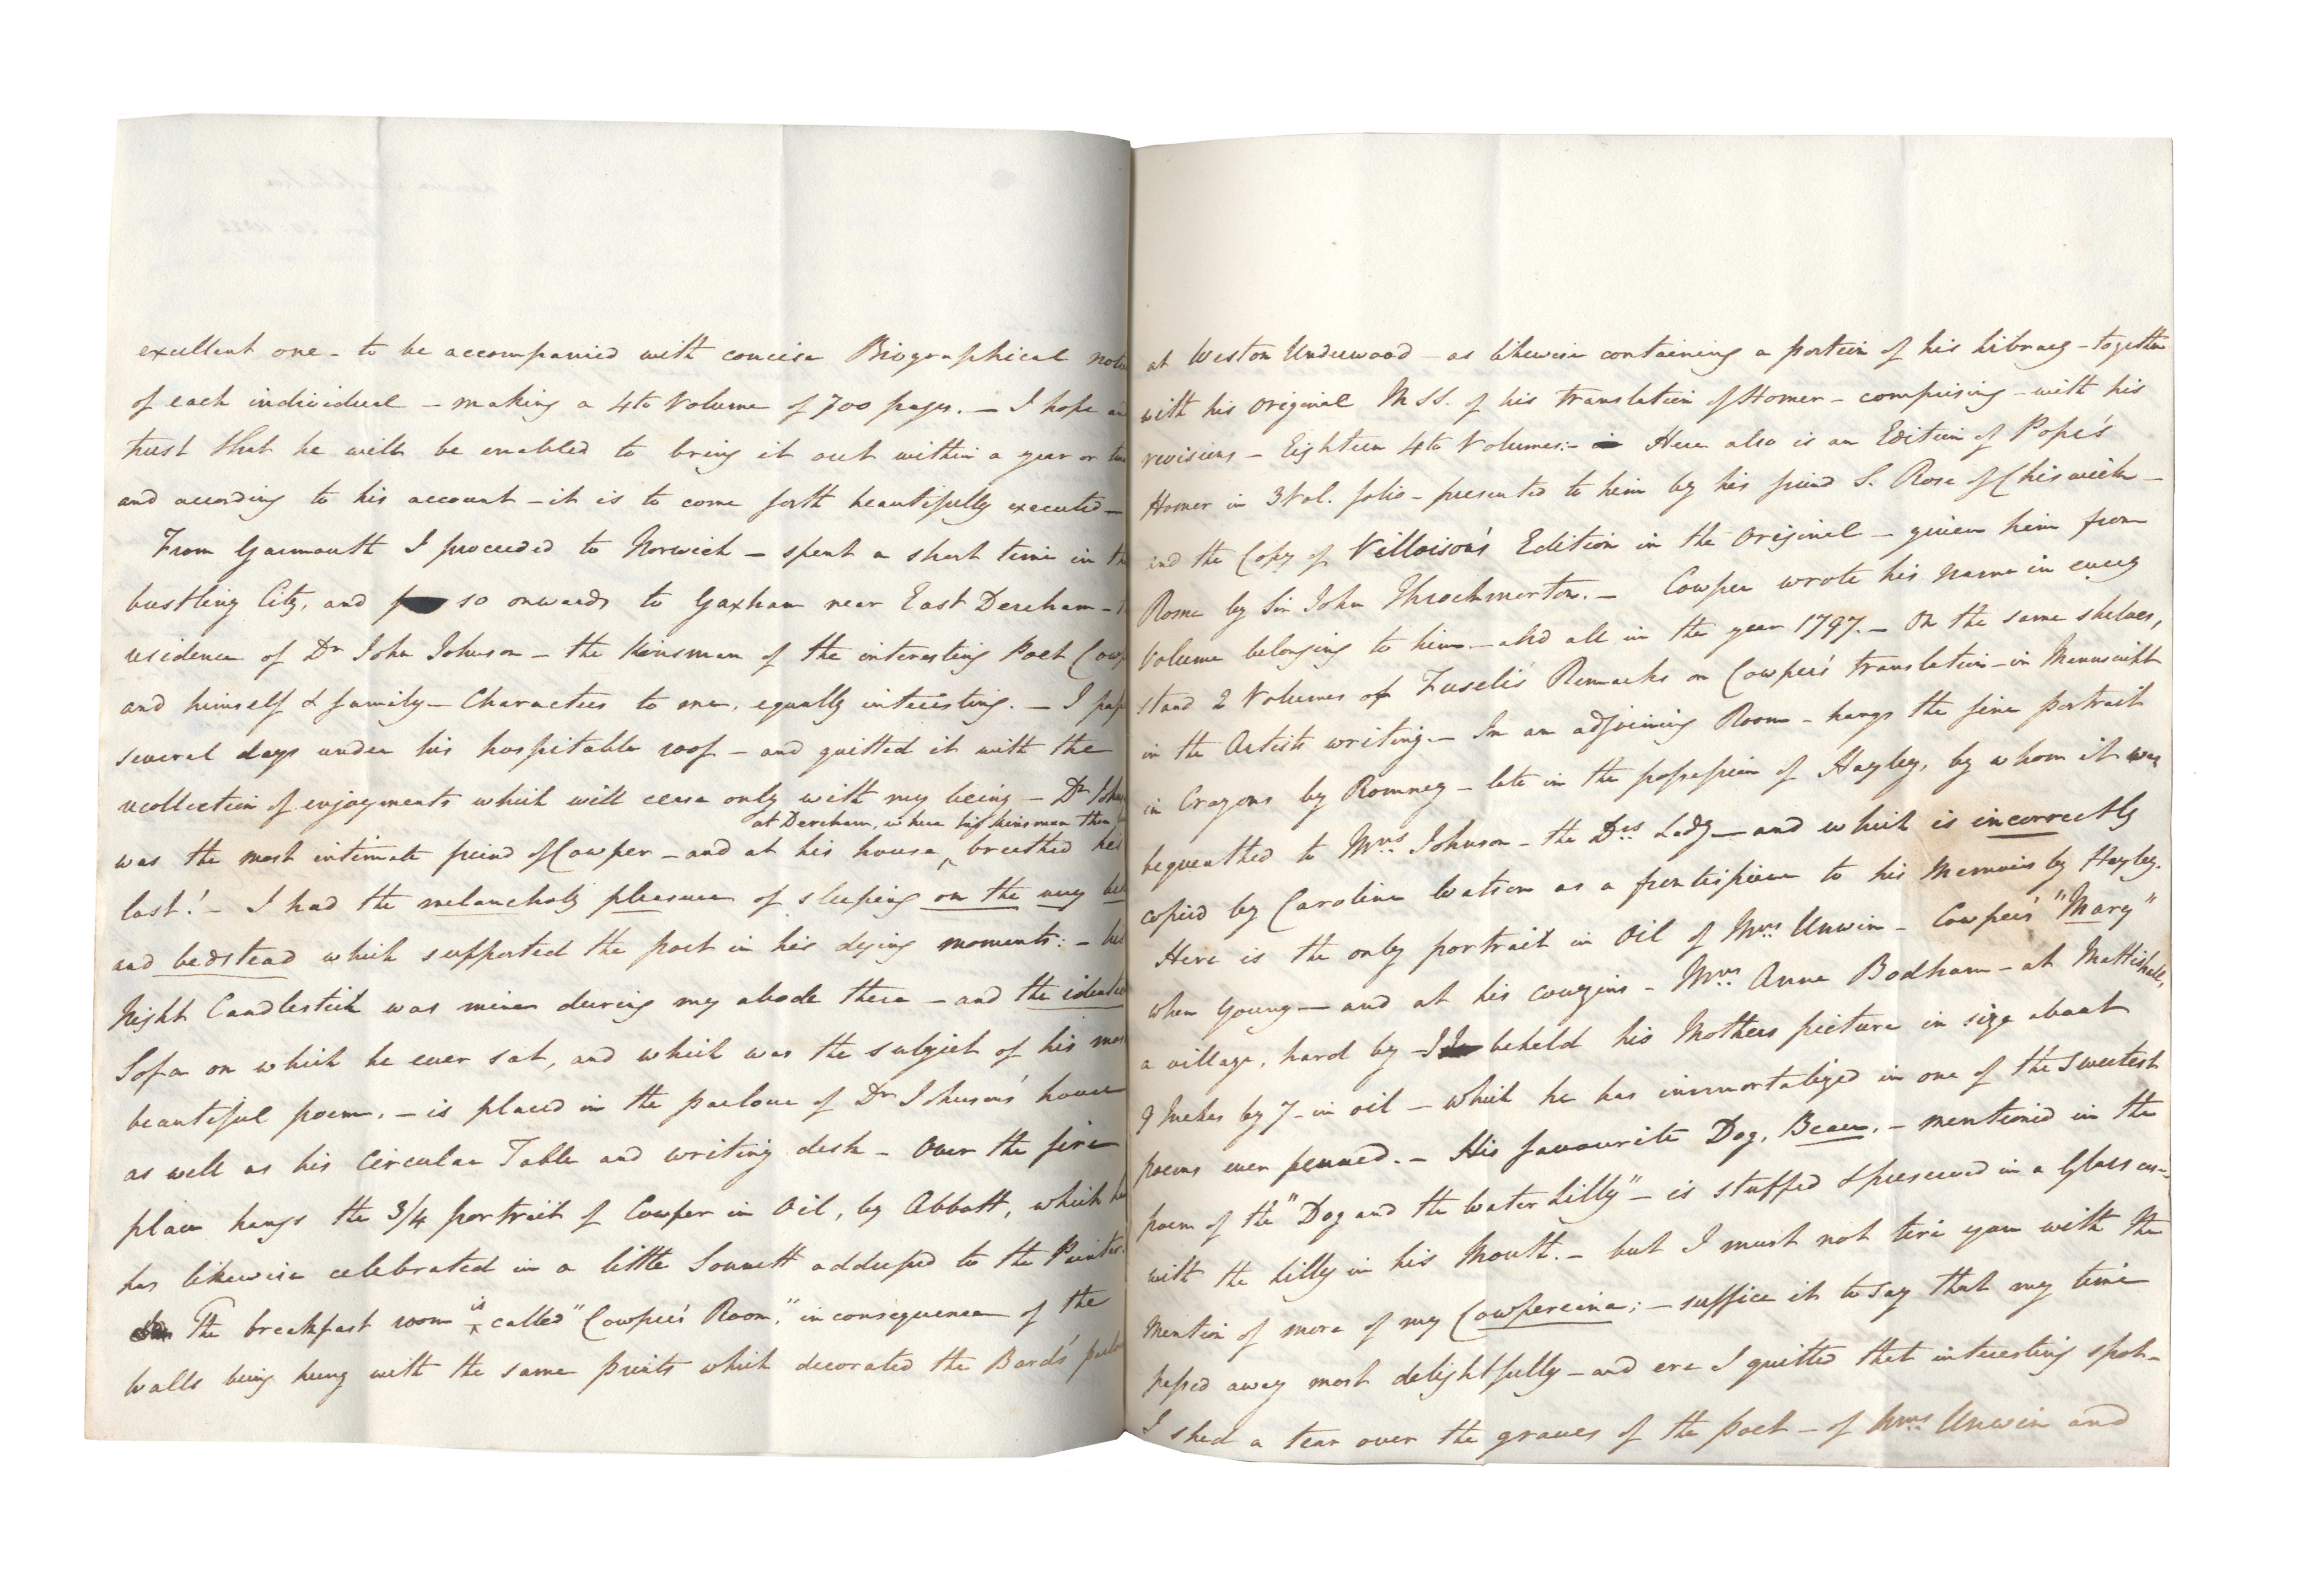 excellent one - to be accompanied with concise Biographical
of each individual - making a 4to Volume of 700 pages. - I hope
trust that he will be enabled to bring it out within a year or
and according to his account - it is to come forth beautifully executed -
From Yarmouth I proceeded to Norwich - spent a short time in
bustling City, and so onwards to Yaxham near East Dereham -
residence of Dr John Johnson - the Kinsman of the interesting Poet
and himself & family - Characters to me, equally interesting. - I
several days under his hospitable roof - and quitted it with the
recollection of enjoyments which will cease only with my being - Dr
at Dereham, where his kinsman then
was the most intimate friend of Cowper - and at his house ^ breathed his
last! - I had the melancholy pleasure of sleeping on the very
and bedstead which supported the poet in his dying moments: - his
Night Candlestick was mine during my abode there - and the
Sofa on which he ever sat, and which was the subject of his
beautiful poem. - is placed in the parlour of Dr Johnson's house
as well as his Circular Table and writing desk - Over the fire
place hangs the 3/4 portrait of Cowper in Oil, by Abbott, which
has likewise celebrated in a little Sonnett addressed to the
The breakfast room ^is called "Cowper's Room," in consequence of the
walls being hung with the same prints which decorated the Bard's
at Weston Underwood - as likewise containing a portion of his Library - together
with his original MSS. of his translation of Homer - comprising - with his
revisions - Eighteen 4to Volumes: - Here also is an Edition of Pope's
Homer in 3 Vol. folio - presented to him by his friend S. Rose of Chiswick -
and the Copy of Villoison's Edition in the Original - given him from
Rome by Sir John Throckmorton. - Cowper wrote his name in every
Volume belonging to him - and all in the year 1797. - On the same shelves,
stand 2 Volumes of Fuseli's Remarks on Cowper's translation - in Manuscript
in the Artists writing. - In an adjoining Room - hangs the fine portrait
in Crayons by Romney - late in the possession of Hayley, by whom it was
bequeathed to Mrs Johnson - the Drs Lady - and which is incorrectly
copied by Caroline Watson as a frontispiece to his Memoirs by Hayley.
Here is the only portrait in Oil of Mrs Unwin - Cowper's "Mary"
when young - and at his cousins - Mrs Anne Bodham - at Mattishall,
a village, hard by - I beheld his Mothers picture in size about
9 Inches by 7 - in oil - which he has immortalized in one of the Sweetest
poems ever penned. - His favourite Dog, Beau, - mentioned in the
poem of the "Dog and the Water Lilly" - is stuffed & preserved in a Glass case
with the Lilly in his Mouth. - but I must not tire you with the
Mention of more of my Cowpereina; - suffice it to say that my time
passed away most delightfully - and ere I quitted that interesting spot -
I shed a tear over the graves of the poet - of Mrs Unwin and